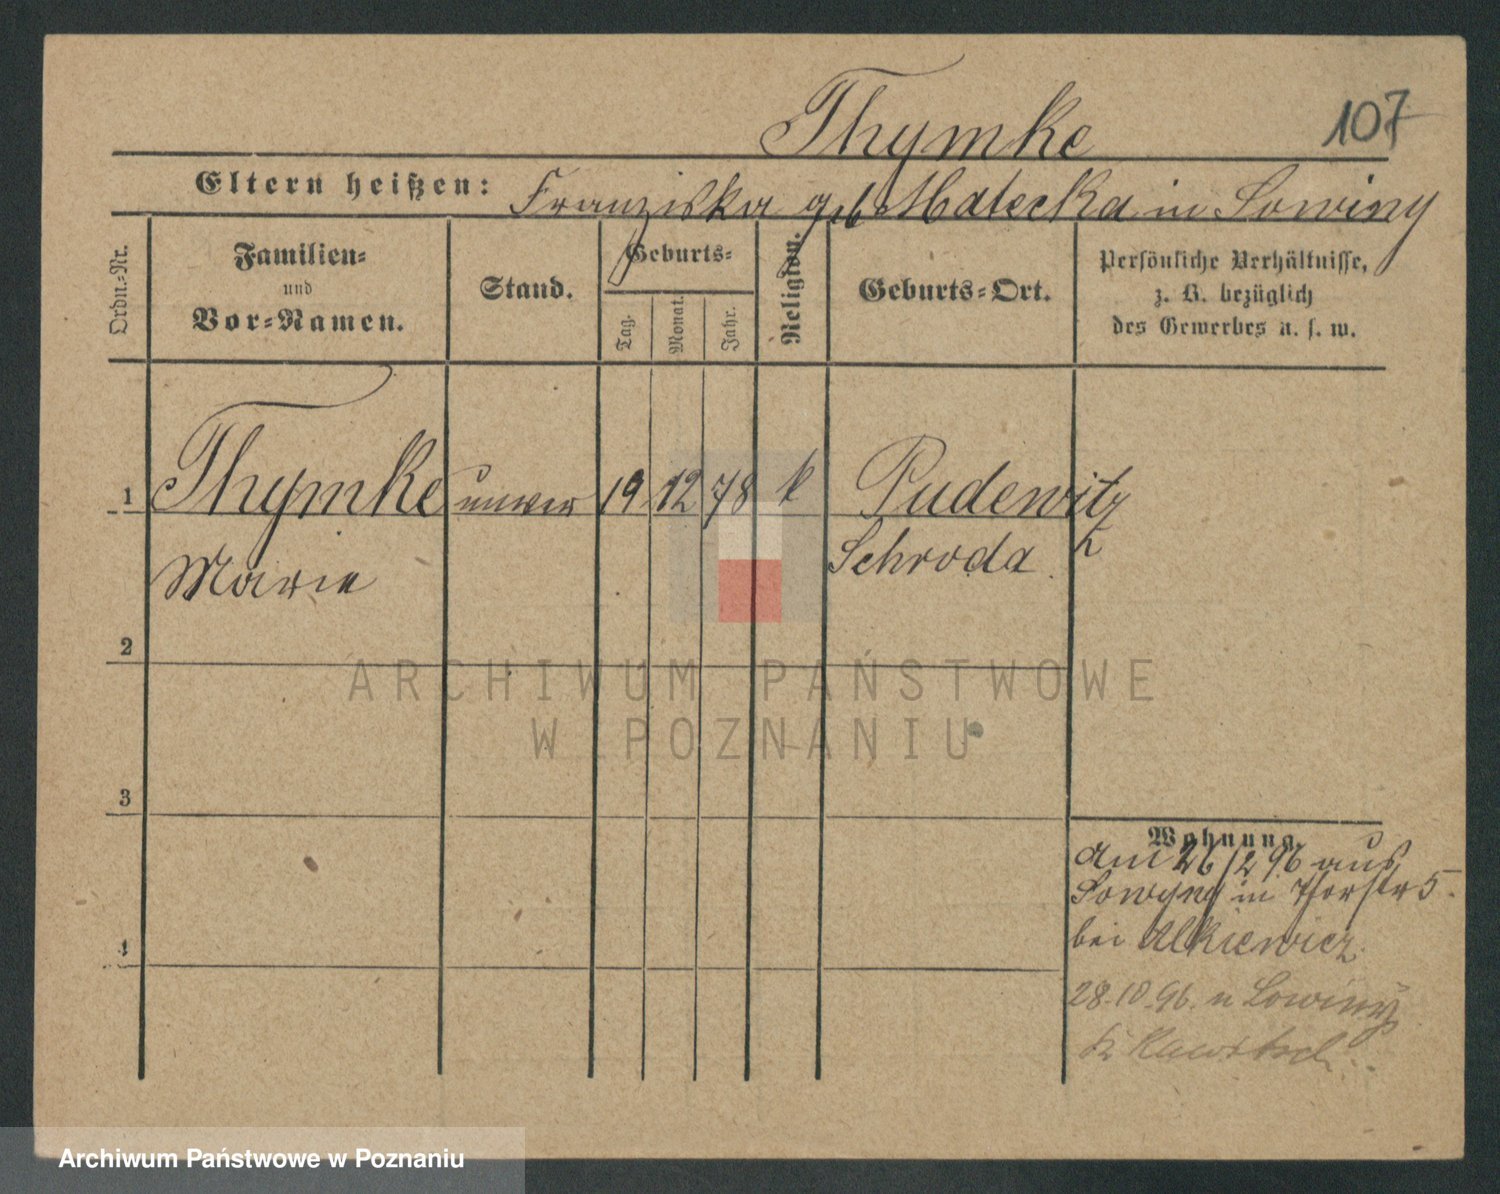 Thymke 107
Eltern heißen: Franziska geb Matecka in Lowiny
Ordn.-Nr.
Familien-
und
Vor-Namen.
Stand.
Geburts-
Tag.
Monat.
Jahr.
Religion.
Geburts-Ort.
Persönliche Verhältnisse,
z. B. bezüglich
des Gewerbes u. s. w.
1 Thymke unver 19 12 78 k Pudewitz
Marie Schroda
2
3
4
Wohnung.
am 26/2 96 aus
Lowyny in Thorstr 5.
bei Alkiewicz
28.10.96. n Lowiny
Kr Rawitsch
ARCHIWUM PAŃSTWOWE
W POZNANIU
Archiwum Państwowe w Poznaniu